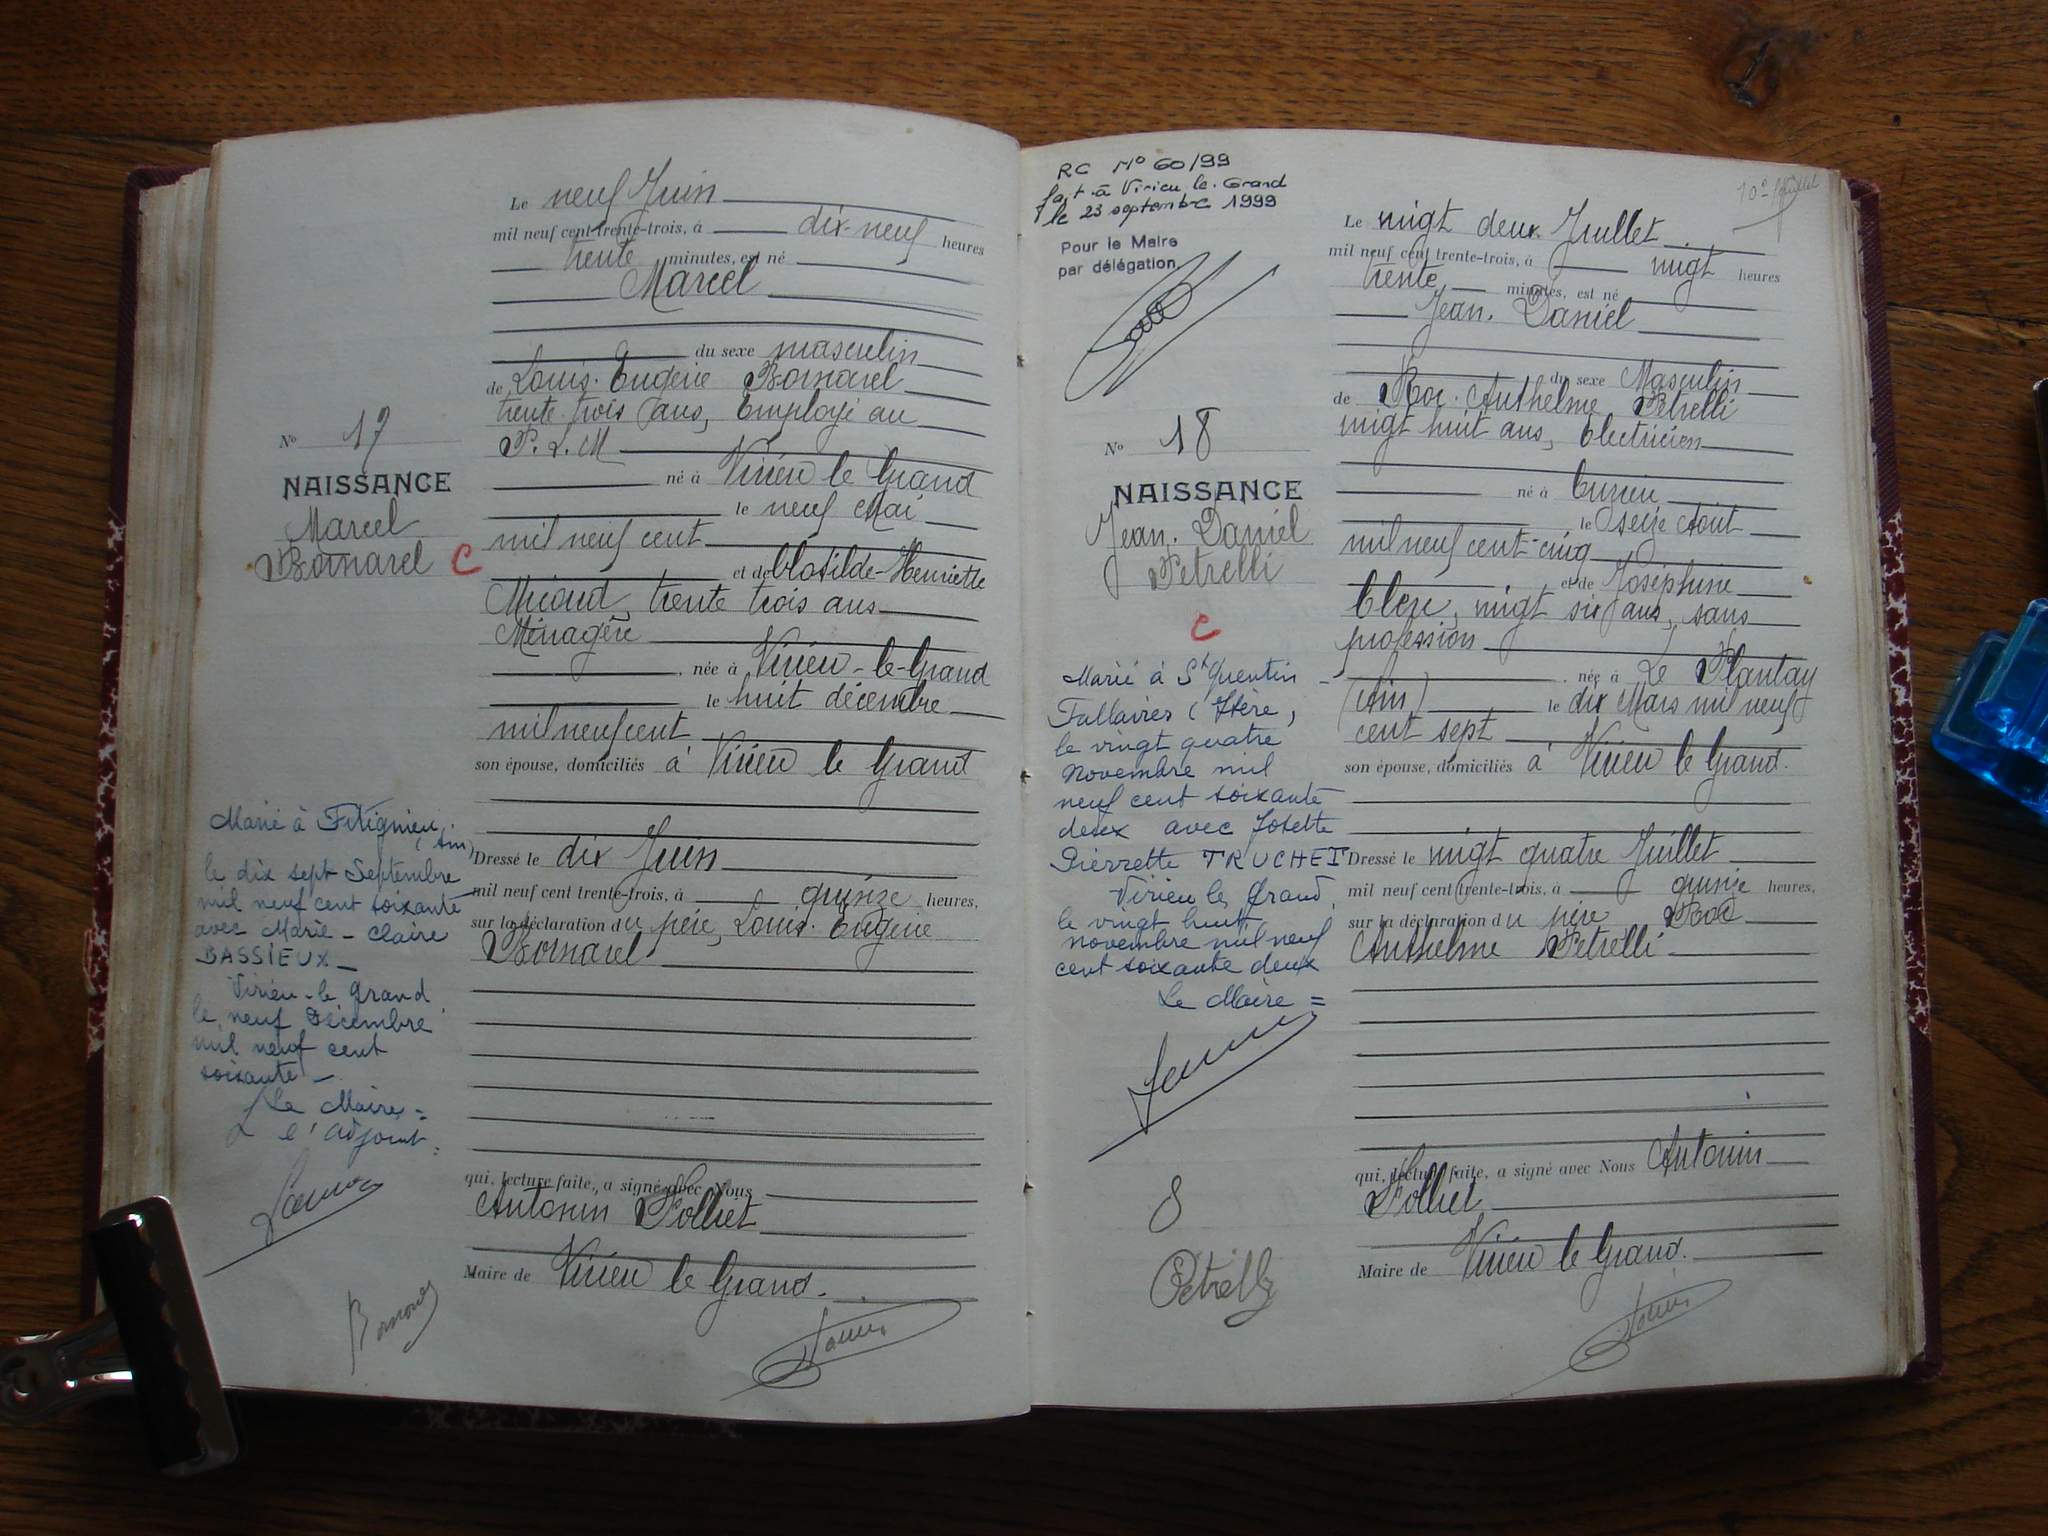 Le neuf Juin
mil neuf cent trente-trois, à dix-neuf heures
trente minutes, est né
Marcel
du sexe masculin
de Louis. Eugène Bornarel
trente trois ans, Employé au
P. L. M
né à Virieu le Grand
le neuf Mai
mil neuf cent
et de Clotilde-Henriette
Micoud, trente trois ans
Ménagère
, née à Virieu-le-Grand
le huit décembre
mil neuf cent
son épouse, domiciliés à Virieu le Grand
Dressé le dix Juin
mil neuf cent trente-trois, à quinze heures,
sur la déclaration du père, Louis. Eugène
Bornarel
qui, lecture faite, a signé avec Nous
Antonin Folliet
Maire de Virieu le Grand.
N° 17
NAISSANCE
Marcel
Bornarel C
Marié à
(Ain)
le dix sept Septembre
mil neuf cent soixante
avec Marie-Claire
BASSIEUX_
Virieu-le-Grand
le neuf Décembre
mil neuf cent
soixante_
Le Maire=
l'adjoint.
RC N° 60/99
fait à Virieu le Grand
le 23 septembre 1999
Pour le Maire
par délégation,
N° 18
NAISSANCE
Jean. Daniel
Petrelli
C
Marié à St Quentin-
Fallavier (Isère,
le vingt quatre
Novembre mil
neuf cent soixante
deux avec Josette
Pierrette TRUCHET
Virieu le Grand,
le vingt huit
novembre mil neuf
cent soixante deux
Le Maire=
8
Petrelli
Le vingt deux Juillet
mil neuf cent trente-trois, à vingt heures
trente minutes, est né
Jean. Daniel
du sexe Masculin
de Roc. Anthelme Petrelli
vingt huit ans, Electricien
né à Cuzieu
le seize Août
mil neuf cent-cinq
et de Joséphine
Clerc, vingt six ans, sans
profession
, née à Le Plantay
(Ain) le dix Mars mil neuf
cent sept
son épouse, domiciliés à Virieu le Grand.
Dressé le vingt quatre Juillet
mil neuf cent trente-trois, à quinze heures,
sur la déclaration du père Roc
Anthelme Petrelli
qui, lecture faite, a signé avec Nous Antonin
Folliet
Maire de Virieu le Grand.